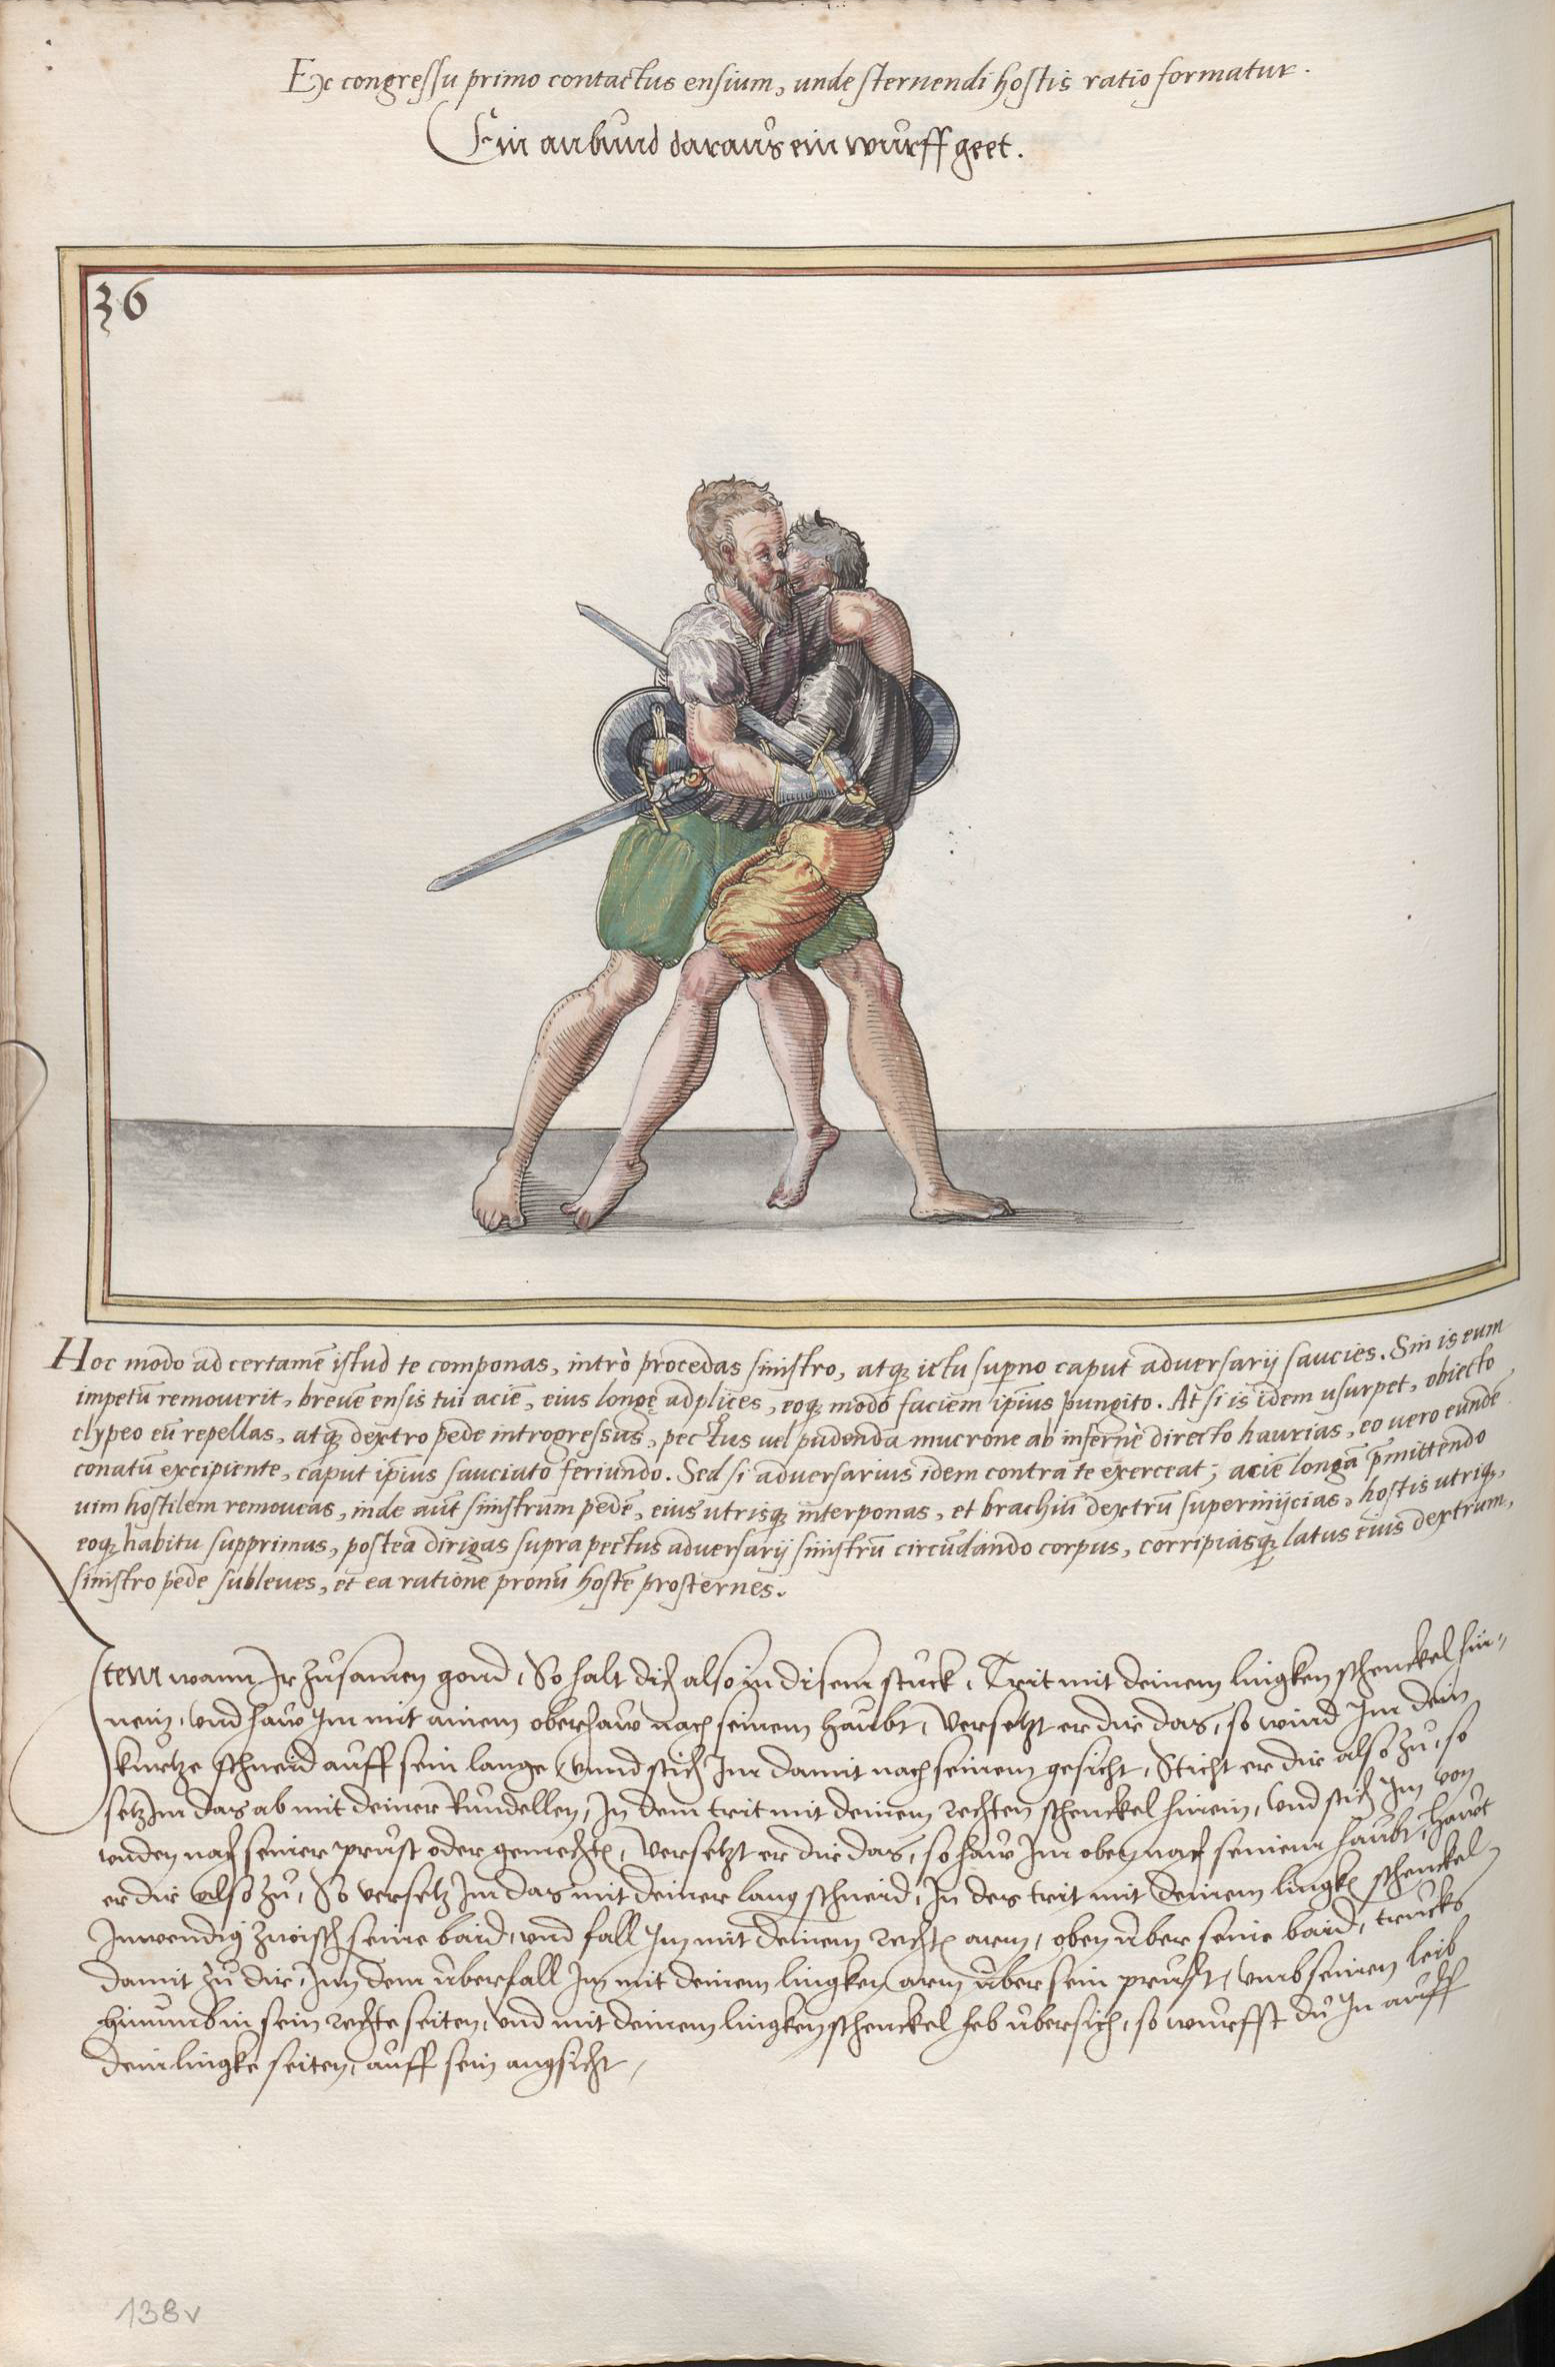 Ex congressu primo contactus ensium, unde sternendi hostis ratio formatur.
Ein anbund daraus ein wurff geet.
36
Hoc modo ad certamē istud te componas, intrò procedas sinistro, atq; ictu supno caput adversarij saucies. Sin is eum
impetū removerit, brevē ensis tui aciē, eius longę adplices, eoq; modo faciem ipsius pungito. At si is idem usurpet, obiecto
clypeo eū repellas, atq; dextro pede introgressus, pectus vel pudenda mucrone ab infernè directo haurias, eo vero eundē
conatū excipiente, caput ipsius sauciato feriundo. Sed si adversarius idem contra te exerceat; aciē longā p̄mittendo
vim hostilem removeas, inde aūt sinistrum pedē, eius utrisq; interponas, et brachiū dextrū superinijcias, hostis utriq;,
eoq; habitu supprimas, postea dirigas supra pectus adversarij sinistrū circūdando corpus, corripiasq; latus eius dextrum,
sinistro pede subleves, et ea ratione pronū hostē prosternes.
Item wann Ir zusamen gond, So halt dich also in disem stuck, Trit mit deinem lingken schenckel hin„
nein, und haw Im mit ainem oberhaw nach seinem haubt, Versetzt er dir das, so wind Im dein
kurtze schneid auff sein lange unnd stich Im damit nach seinem gesicht, Sticht er dir also zu, so
setz Im das ab mit deiner Rundellen, In dem trit mit deinem rechten schenckel hinein, und stich Im von
unden nach seiner prust oder gemechte, Versetzt er dir das, so haw Im oben nach seinem haubt, Hawt
er dir also zu, So versetz Im das mit deiner lang schneid, In des trit mit deinem lingkē schenckel
Inwendig zwisch seine baid, und fall Im mit deinem rechtē arm, oben uber seine baid, trucks
damit zu dir, Inn dem uberfall Im mit deinem lingken arm uber sein prust, umb seinen leib
hinumb in sein rechte seiten, und mit deinem lingken schenckel heb ubersich, so wurffst du In auff
dein lingke seiten, auff sein angsicht,
138v